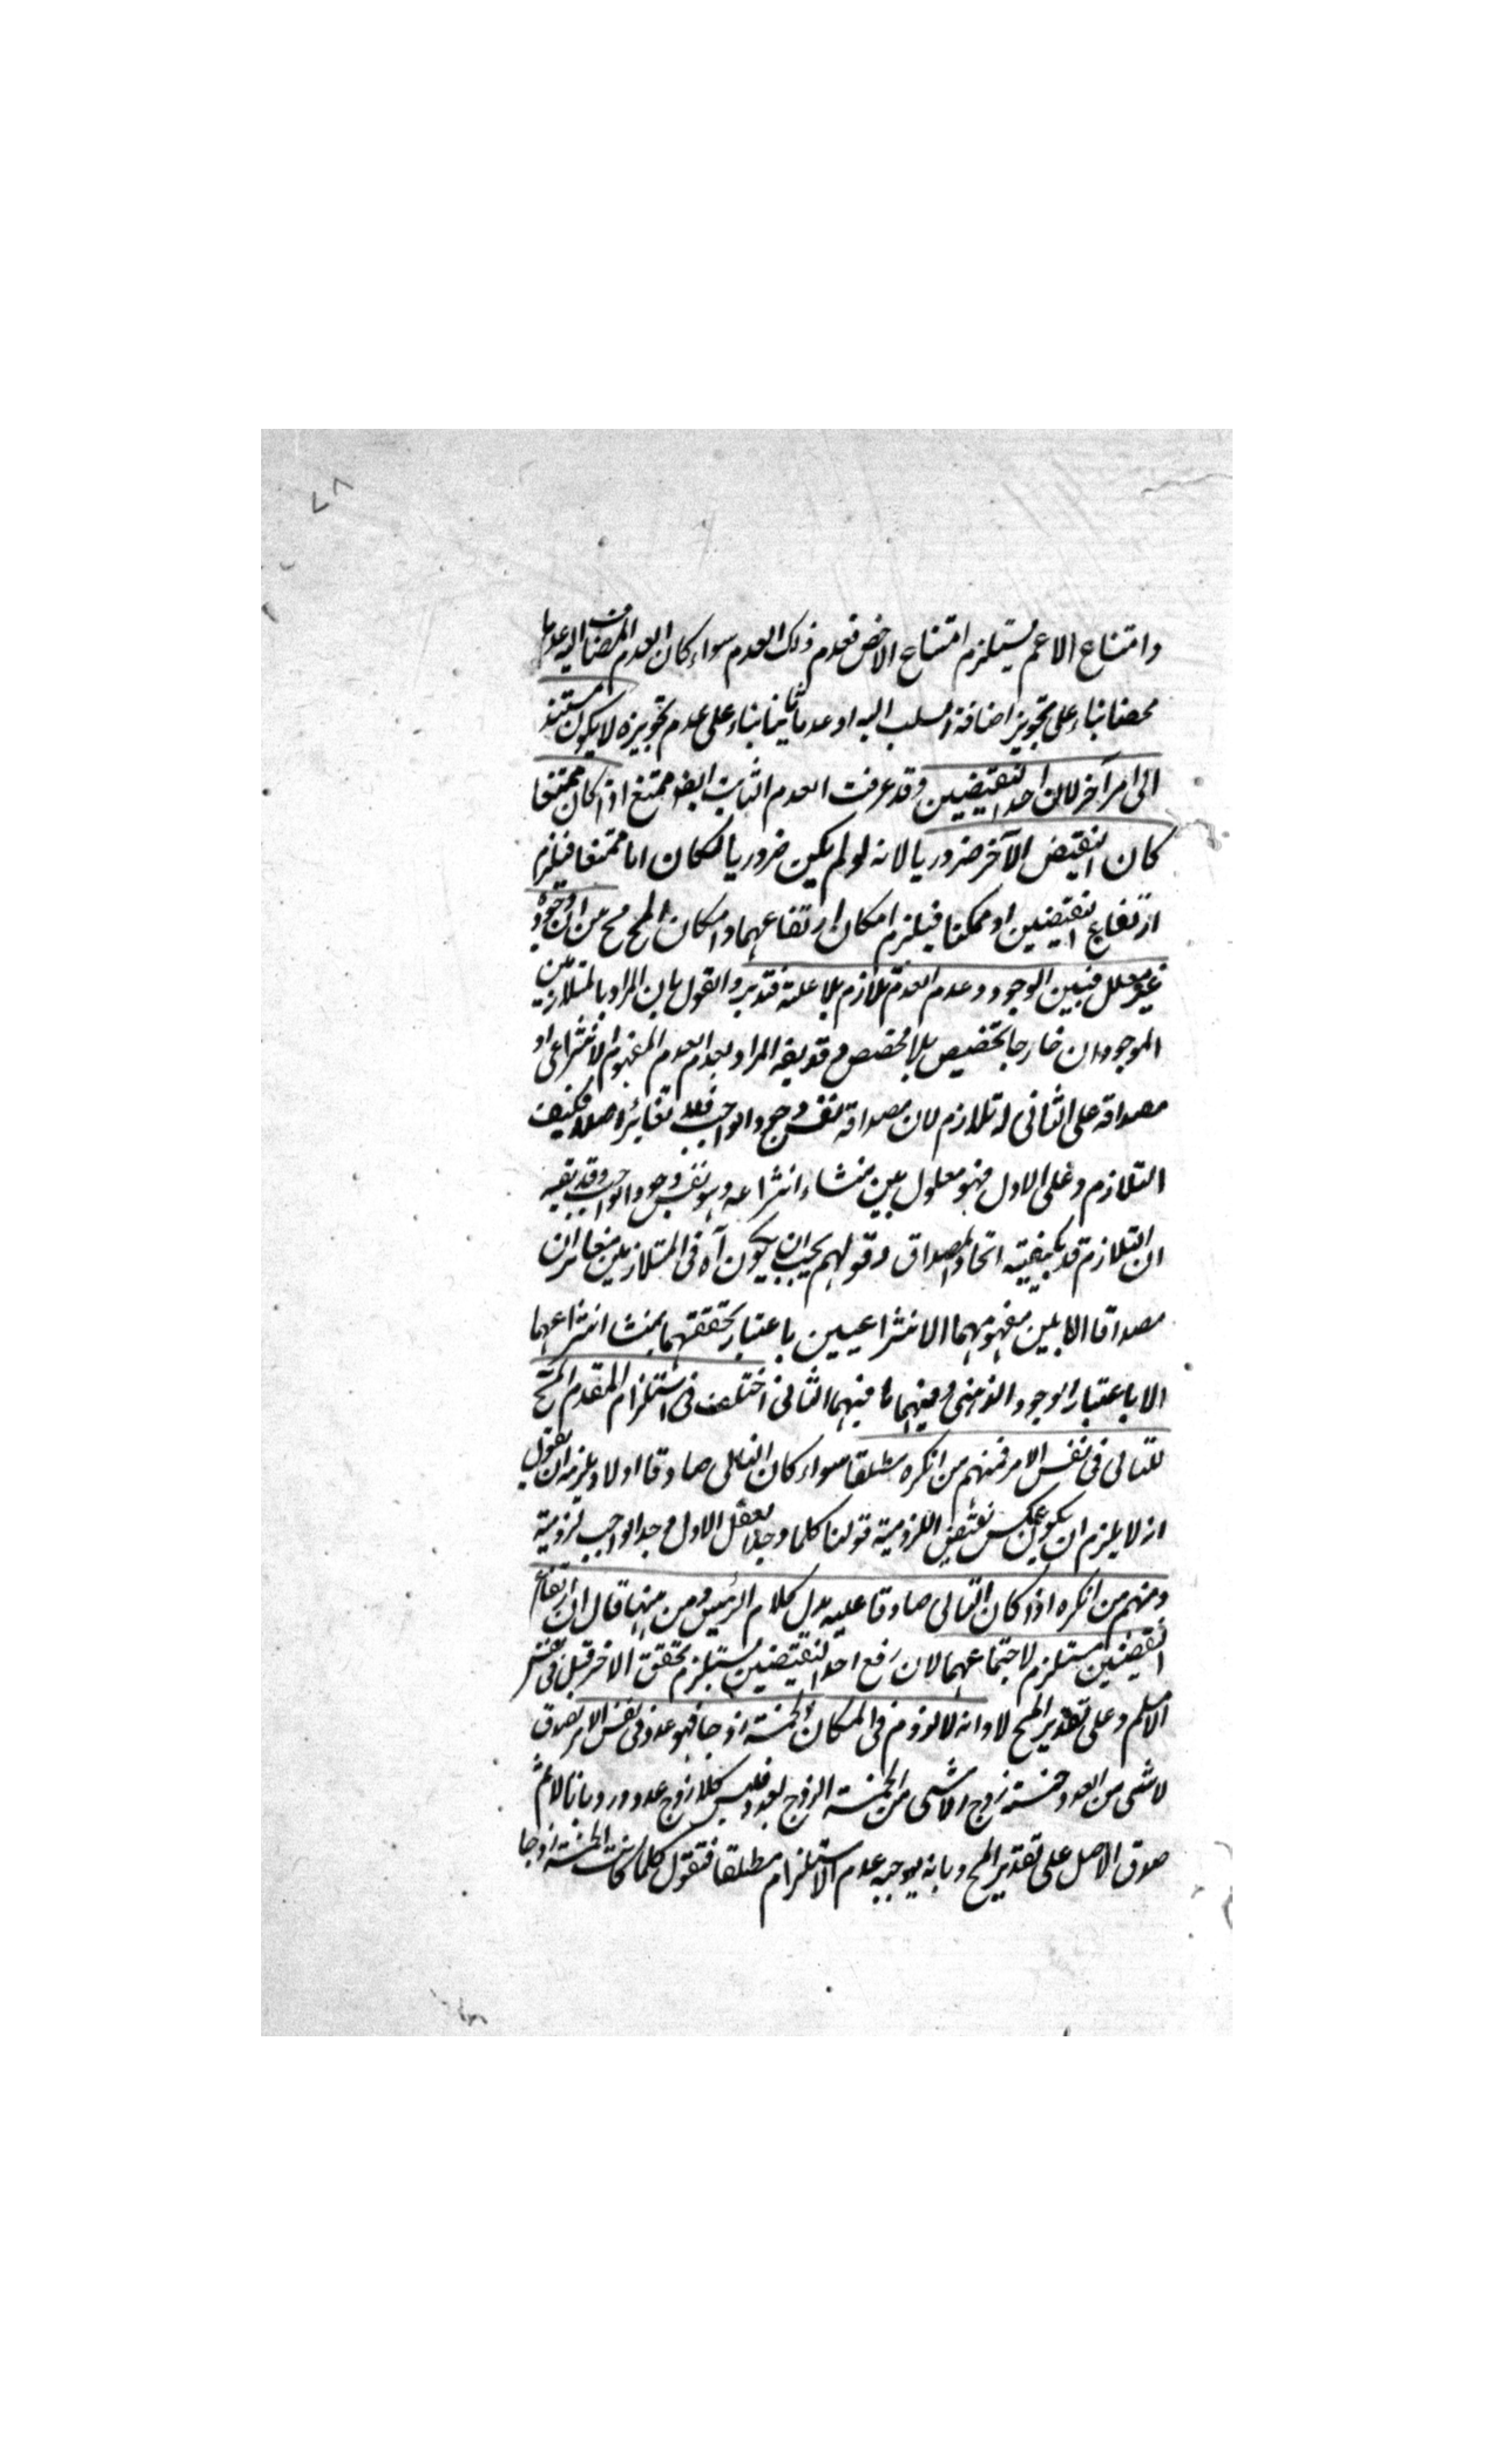 ٢٨
وامتناع الاعم يستلزم امتناع الاخص فعدم ذلك العدم سواء كان العدم المضاف اليه عدما
محضا بناء على تجويز اضافة السلب اليه او عدما ثابتا بناء على عدم تجويزه لا يكون مستند
الى امر آخر لان احد النقيضين وقد عرفت العدم الثابت ايضو ممتنع اذا كان ممتنعا
كان النقيض الآخر ضروريا لانه لو لم يكن ضروريا لكان اما ممتنعا فيلزم
ارتفاع النقيضين او ممكنا فيلزم امكان ارتفاعهما وامكان المح مح من ان وجوده
غير معلل فبين الوجود وعدم العدم تلازم بلا علة فتدبر والقول بان المراد بالمتلازمين
الموجودان خارجا تخصيص بلا مخصص وقد يقه المراد بعدم العدم المفهوم الانتزاعى او
مصداقه على الثانى لا تلازم لان مصداقه نفس وجود الواجب فلا تغائر اصلا فكيف
التلازم وعلى الاول فهو معلول بين منشاء انتزاعه وهو نفس وجود الواجب وقد يقه
ان التلازم قد يكيفيه اتحاد المصداق وقولهم يجب ان يكون آه فى المتلازمين متغايران
مصداقا لا بين مفهوميهما الانتزاعيين باعتبار تحققهما بمنشا انتزاعهما
الا باعتبار الوجود الذهنى وفيهما ما فيهما الثانى اختلف فى استلزام المقدم المح
للتالى فى نفس الامر فمنهم من انكره مطلقا سواء كان التالى صادقا اولا ويلزمه ان يقول
انه لا يلزم ان يكون عكس نقيض اللزومية قولنا كلما وجد العقل الاول وجد الواجب لزومية
ومنهم من انكره اذا كان التالى صادقا عليه يدل كلام الرئيس ومن منها قال ان ارتفاع
النقيضين مستلزم لاجتماعهما لان رفع احد النقيضين يستلزم تحقق الاخر قبل فى نفس
الامر مسلم وعلى تقدير المح لا وانه لا لزوم فى المكان الخمسة زوجا فهو عدد فى نفس الامر لصدق
لا شى من العدد خمسة زوج الا شى من الخمسة الزوج بعدد فليس كلا زوج عدد ورد بانا لا نم
صدق الاصل على تقدير المح وبانه يوجبه عدم الاستلزام مطلقا فتقول كلما كانت الخمسة زوجا